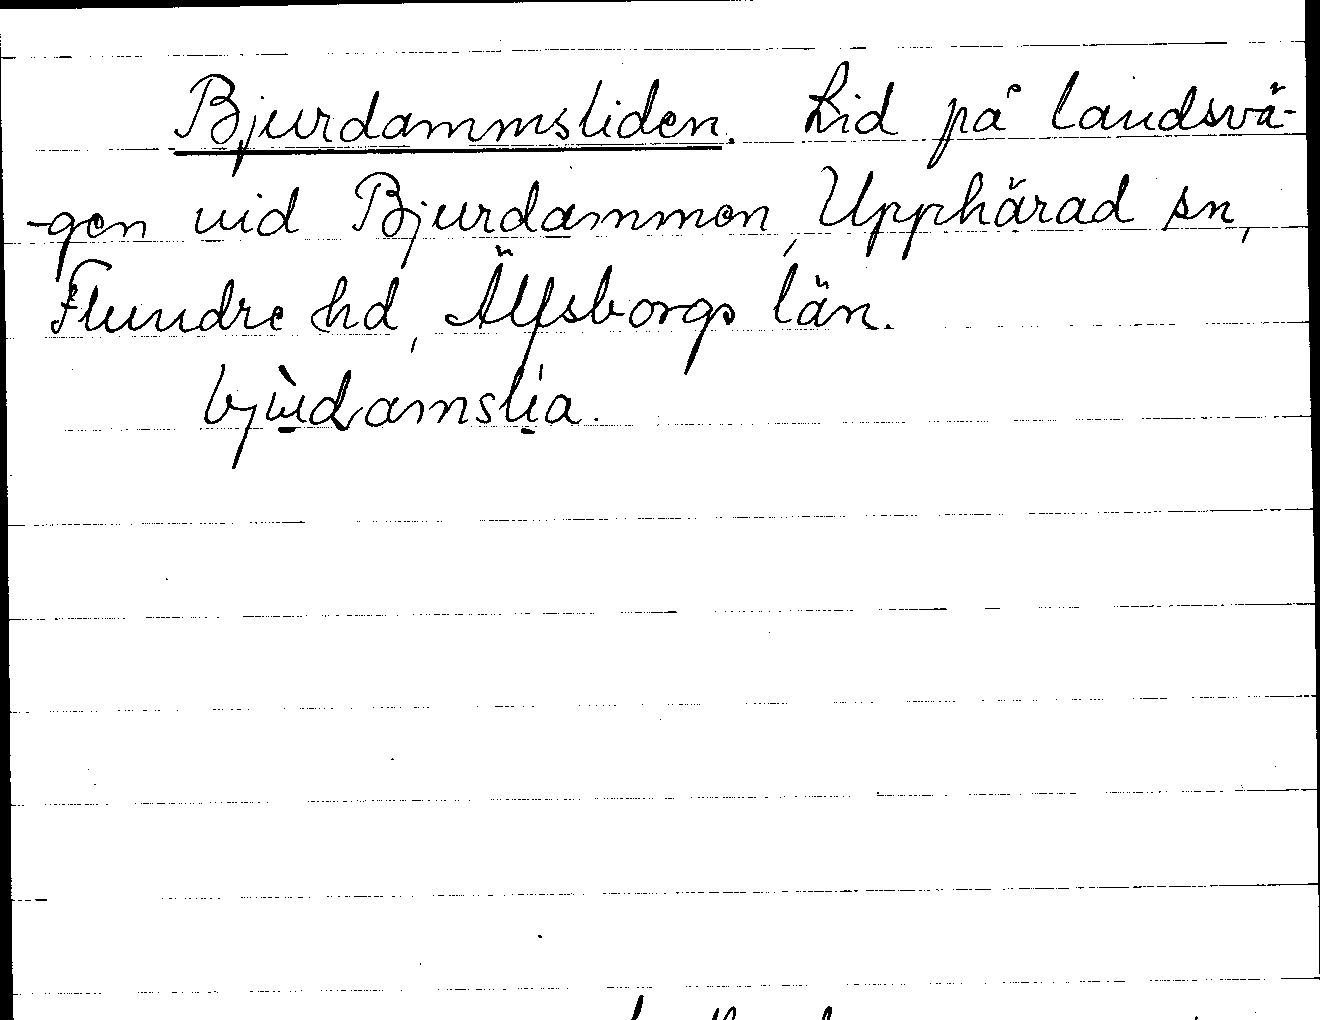 Bjurdammsliden. Lid på landsvä-
-gen vid Bjurdammen, Upphärad sn,
Flundre hd, Älfsborgs län.
bjùdamslía.